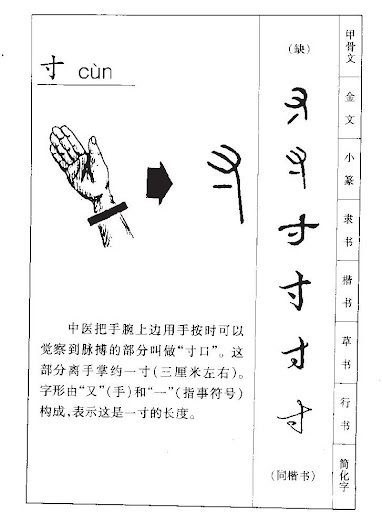 寸 cùn
中医把手腕上边用手按时可以
觉察到脉搏的部分叫做“寸口”。这
部分离手掌约一寸(三厘米左右)。
字形由“又”(手)和“一”(指事符号)
构成,表示这是一寸的长度。
(缺)
寸
寸
寸
寸
寸
寸
(同楷书)
甲骨文
金文
小篆
隶书
楷书
草书
行书
简化字